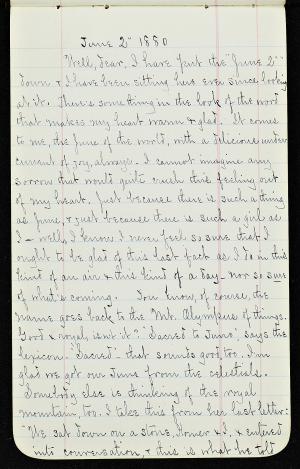 June 2" 1880
Well, dear, I have put the "June 2"
down & I have been sitting here ever since looking
at it. There's something in the look of the word
that makes my heart warm & glad. It comes
to me, the June of the world, with a delicious under
current of joy, always. I cannot imagine any
sorrow that would quite crush this feeling out
of my heart. Just because there is such a thing
as June, & just because there is such a girl as
I – well, I know I never feel so sure that I
ought to be glad of this last fact as I do in this
kind of an air & this kind of a day – nor so sure
of what's coming. You know, of course, the
name goes back to the Mt. Olympus of things.
Good & royal, isn't it? "Sacred to Juno", says the
lexicon. "Sacred" – that sounds good, too. I'm
glad we got our June from the celestials.
Somebody else is thinking of the royal
mountain, too. I take this from her last letter:
"We sat down on a stone, Homer & I, & entered
into conversation, & this is what he told